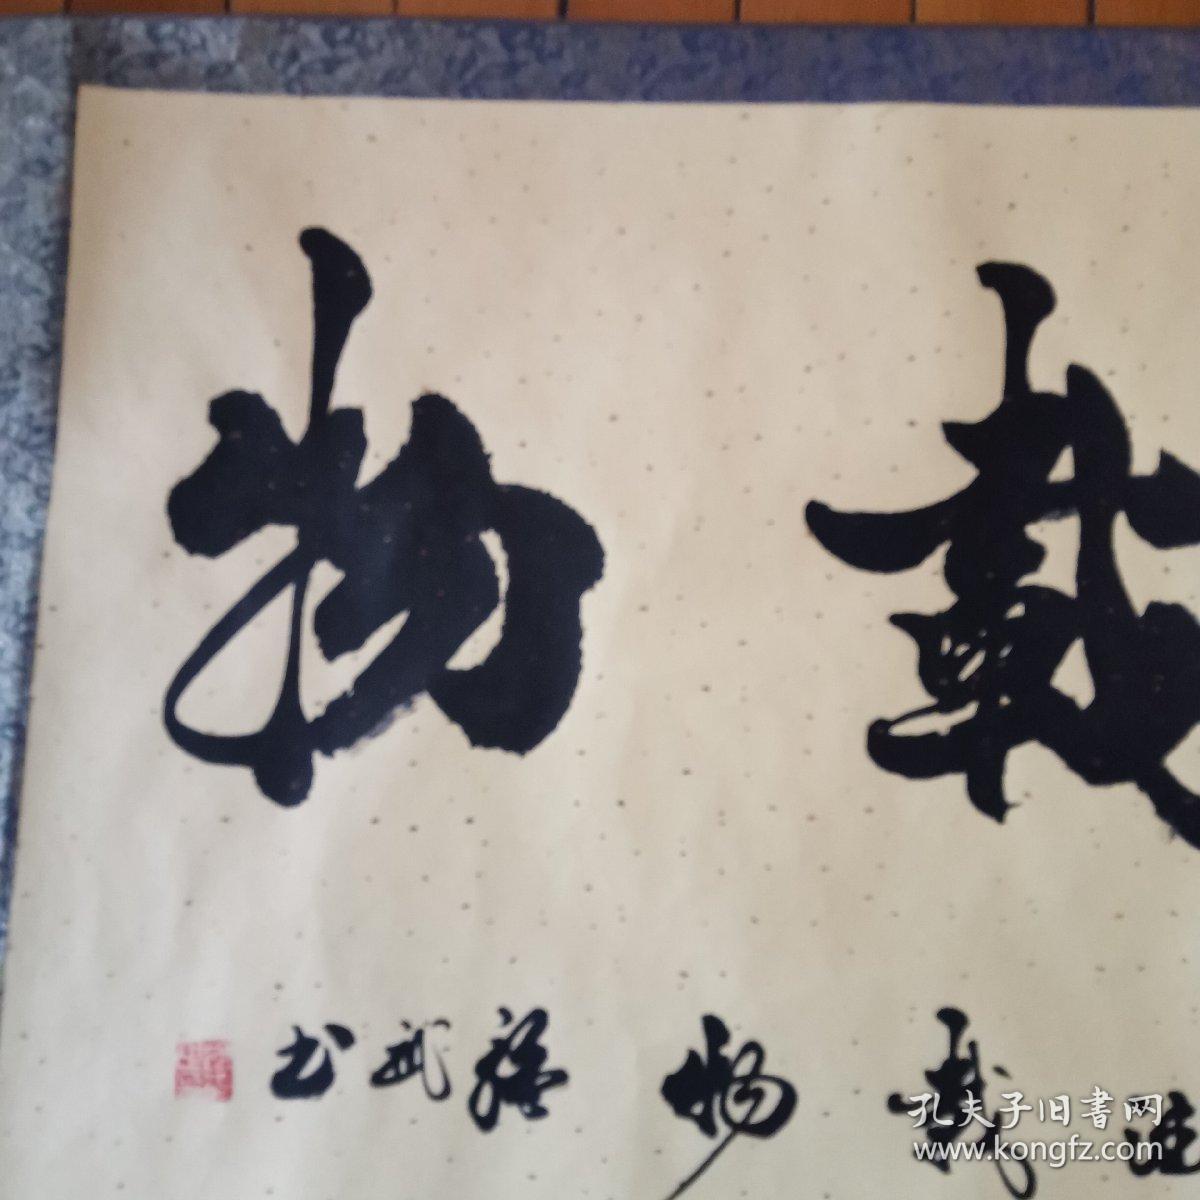 載物
載物
武书
孔夫子旧書网
www.kongfz.com